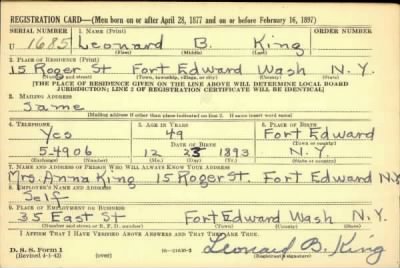 REGISTRATION CARD—(Men born on or after April 28, 1877 and on or before February 16, 1897)
SERIAL NUMBER 1. NAME (Print) ORDER NUMBER
U 1685 Leonard B. King
(First) (Middle) (Last)
2. PLACE OF RESIDENCE (Print)
15 Roger St Fort Edward Wash N.Y.
(Number and street) (Town, township, village, or city) (County) (State)
[THE PLACE OF RESIDENCE GIVEN ON THE LINE ABOVE WILL DETERMINE LOCAL BOARD
JURISDICTION; LINE 2 OF REGISTRATION CERTIFICATE WILL BE IDENTICAL]
3. MAILING ADDRESS
Same
[Mailing address if other than place indicated on line 2. If same insert word same]
4. TELEPHONE 5. AGE IN YEARS 6. PLACE OF BIRTH
Yes 49 Fort Edward
DATE OF BIRTH (Town or county)
5-4906 12 23 1893 N.Y.
(Exchange) (Number) (Mo.) (Day) (Yr.) (State or country)
7. NAME AND ADDRESS OF PERSON WHO WILL ALWAYS KNOW YOUR ADDRESS
Mrs. Anna King 15 Roger St. Fort Edward N.Y.
8. EMPLOYER'S NAME AND ADDRESS
Self
9. PLACE OF EMPLOYMENT OR BUSINESS
35 East St Fort Edward Wash N.Y.
(Number and street or R. F. D. number) (Town) (County) (State)
I AFFIRM THAT I HAVE VERIFIED ABOVE ANSWERS AND THAT THEY ARE TRUE.
D. S. S. Form 1
(Revised 4-1-42) (over) Leonard B. King
(Registrant's signature)